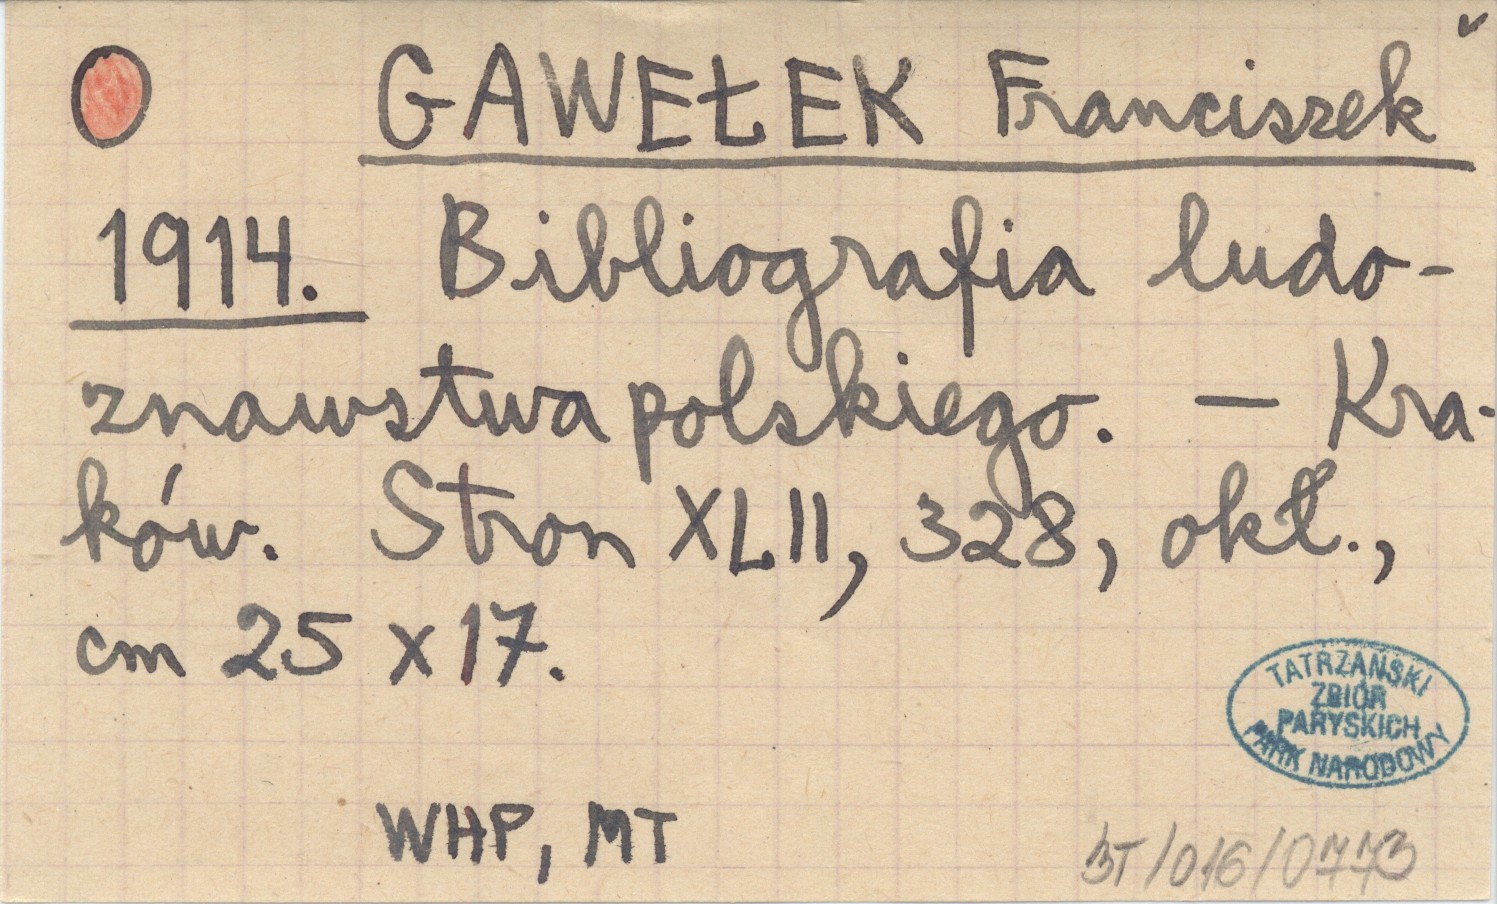 GAWEŁEK Franciszek
1914. Bibliografia ludo-
znawstwa polskiego. — Kra-
ków. Stron XLII, 328, okł.,
cm 25 x 17.
TATRZAŃSKI
ZBIÓR
PARYSKICH
PARK NARODOWY
WHP, MT
BT/016/0773